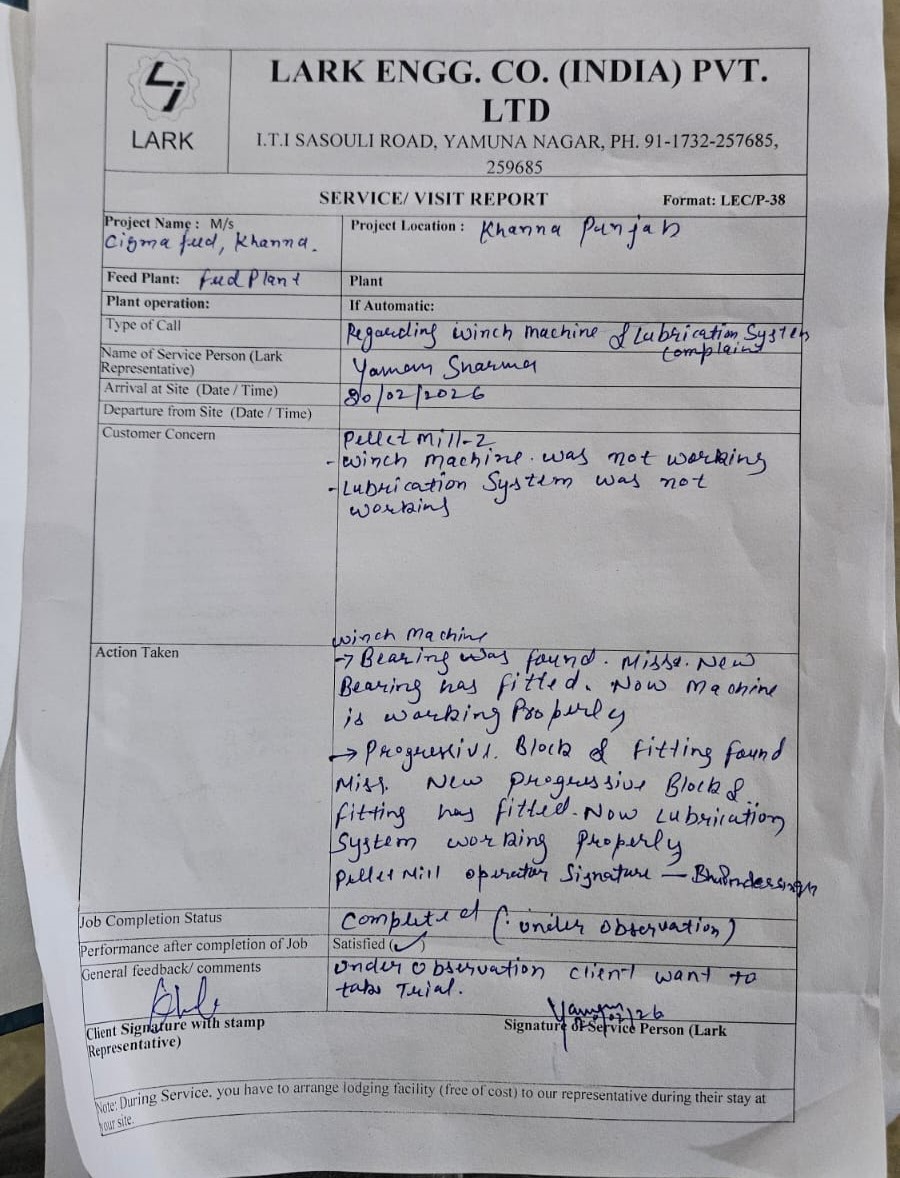 LARK
LARK ENGG. CO. (INDIA) PVT.
LTD
I.T.I SASOULI ROAD, YAMUNA NAGAR, PH. 91-1732-257685,
259685
SERVICE/ VISIT REPORT Format: LEC/P-38
Project Name : M/s
Cigma feed, Khanna.
Project Location : Khanna Punjab
Feed Plant: feed Plant Plant
Plant operation: If Automatic:
Type of Call Regarding winch machine & Lubrication System
Complaint
Name of Service Person (Lark
Representative) Yaman Sharma
Arrival at Site (Date / Time) 20/02/2026
Departure from Site (Date / Time)
Customer Concern Pellet Mill-2
- winch machine. was not working
- Lubrication System was not
working
winch Machine
Action Taken
→ Bearing was found. Miss. New
Bearing has fitted. Now Machine
is working Properly
→ Progressive. Block & fitting found
Miss. New progressive Block &
fitting has fitted. Now Lubrication
System working Properly
Pellet Mill operator Signature —
Job Completion Status Completed (: under observation)
Performance after completion of Job Satisfied (✓)
General feedback/ comments under observation client want to
take Trial.
Yaman
Client Signature with stamp
Representative)
Signature of Service Person (Lark
Note: During Service, you have to arrange lodging facility (free of cost) to our representative during their stay at
your site.